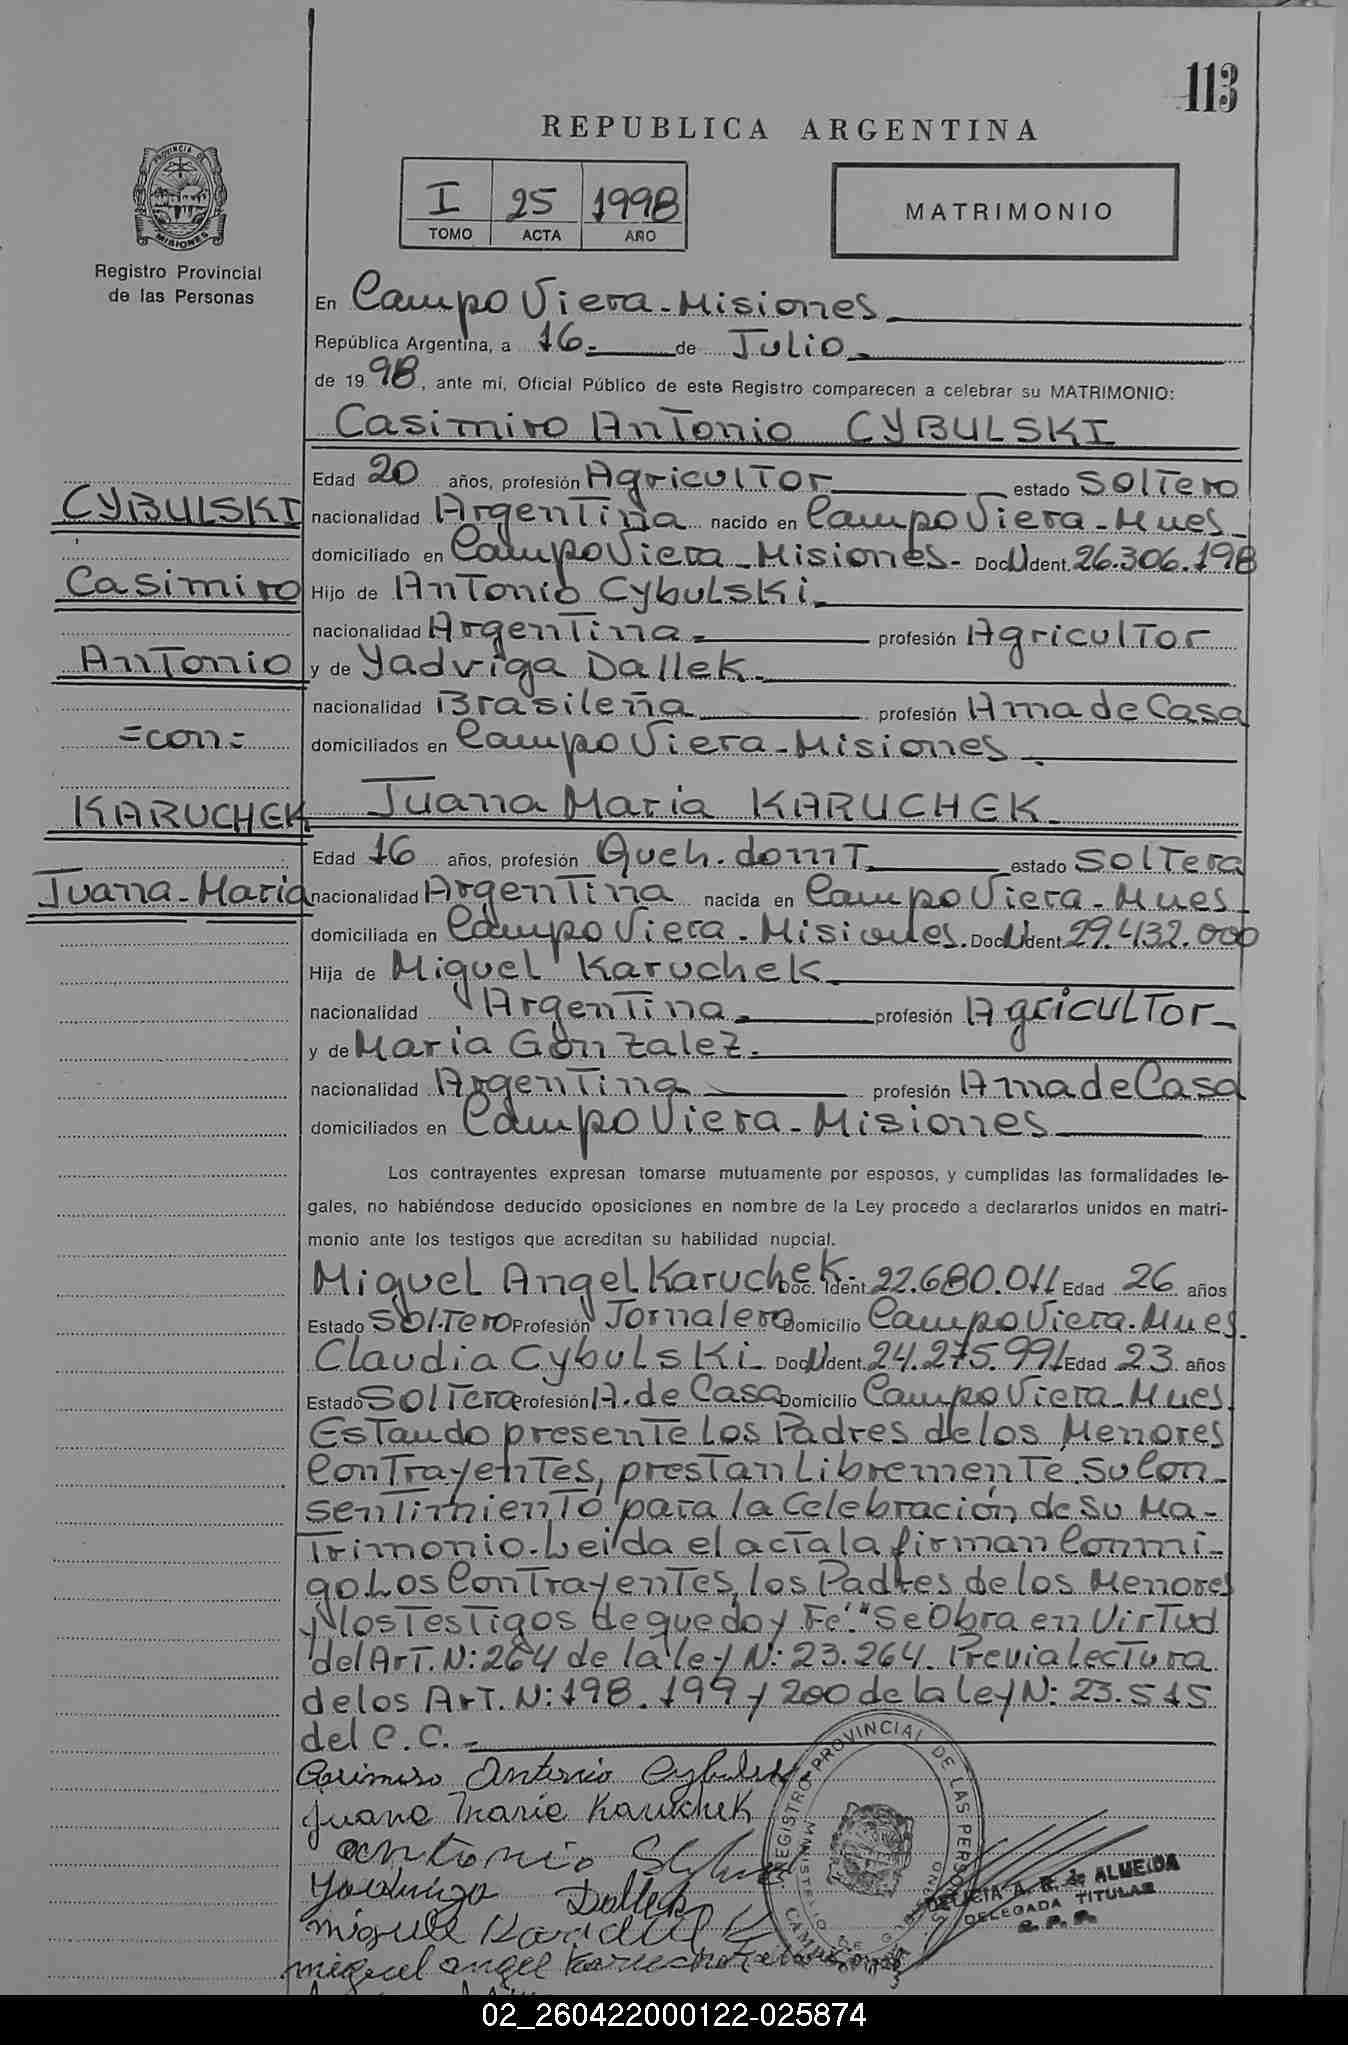 113
REPUBLICA ARGENTINA
I 25 1998
TOMO ACTA AÑO
MATRIMONIO
PROVINCIA DE MISIONES
Registro Provincial
de las Personas
En Campo Viera - Misiones
República Argentina, a 16 - de Julio -
de 1998, ante mí, Oficial Público de este Registro comparecen a celebrar su MATRIMONIO:
Casimiro Antonio CYBULSKI
Edad 20 años, profesión Agricultor estado Soltero
CYBULSKI
nacionalidad Argentina nacido en Campo Viera - Mnes -
domiciliado en Campo Viera - Misiones - Doc. N Ident. 26.306.198
Casimiro
Hijo de Antonio Cybulski -
nacionalidad Argentina - profesión Agricultor
Antonio
y de Yadviga Dallek -
nacionalidad Brasileña profesión Ama de Casa
=con=
domiciliados en Campo Viera - Misiones -
KARUCHEK
Juana Maria KARUCHEK -
Edad 16 años, profesión Queh. domt estado Soltera
Juana - Maria
nacionalidad Argentina nacida en Campo Viera - Mnes -
domiciliada en Campo Viera - Misiones. Doc. N Ident. 29.432.000
Hija de Miguel Karuchek -
nacionalidad Argentina - profesión Agricultor -
y de Maria Gonzalez -
nacionalidad Argentina profesión Ama de Casa
domiciliados en Campo Viera - Misiones
Los contrayentes expresan tomarse mutuamente por esposos, y cumplidas las formalidades le-
gales, no habiéndose deducido oposiciones en nombre de la Ley procedo a declararlos unidos en matri-
monio ante los testigos que acreditan su habilidad nupcial.
Miguel Angel Karuchek - Doc. Ident. 22.680.011 Edad 26 años
Estado Soltero Profesión Jornalero Domicilio Campo Viera - Mnes.
Claudia Cybulski - Doc. N Ident. 24.275.991 Edad 23 años
Estado Soltera Profesión A. de Casa Domicilio Campo Viera - Mnes.
Estando presente Los Padres de los Menores
Contrayentes, prestan Libremente su Con-
sentimiento para la Celebración de su Ma-
trimonio. Leida el acta la firman Conmi-
go Los Contrayentes, los Padres de los Menores
y los Testigos de que doy Fe." "Se Obra en Virtud
del Art. N: 264 de la ley N: 23.264. Previa lectura
de los Art. N: 198 . 199 y 200 de la ley N: 23.515
del C.C. -
Casimiro Antonio Cybulski
Juana Maria Karuchek
Antonio
Yadwiga Dallek
miguel
miguel angel Karuchek
REGISTRO PROVINCIAL DE LAS PERSONAS
MINISTERIO DE GOBIERNO
DELICIA A. R. de ALMEIDA
DELEGADA TITULAR
R. P. P.
02_260422000122-025874